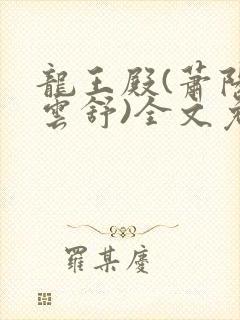 龍王殿(蕭
雲舒)全文
羅某慶